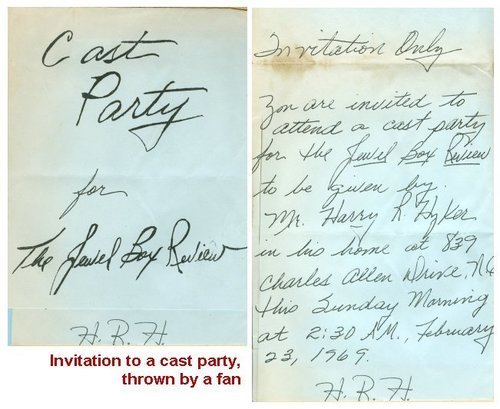 Cast
Party
for
The Jewel Box Review
H. R. H.
Invitation to a cast party,
thrown by a fan
Invitation Only
You are invited to
attend a cast party
for the Jewel Box Review
to be given by
Mr. Harry R. Hyker
in his home at 839
Charles Allen Drive, N.E
this Sunday Morning
at 2:30 A.M., February
23, 1969.
H. R. H.